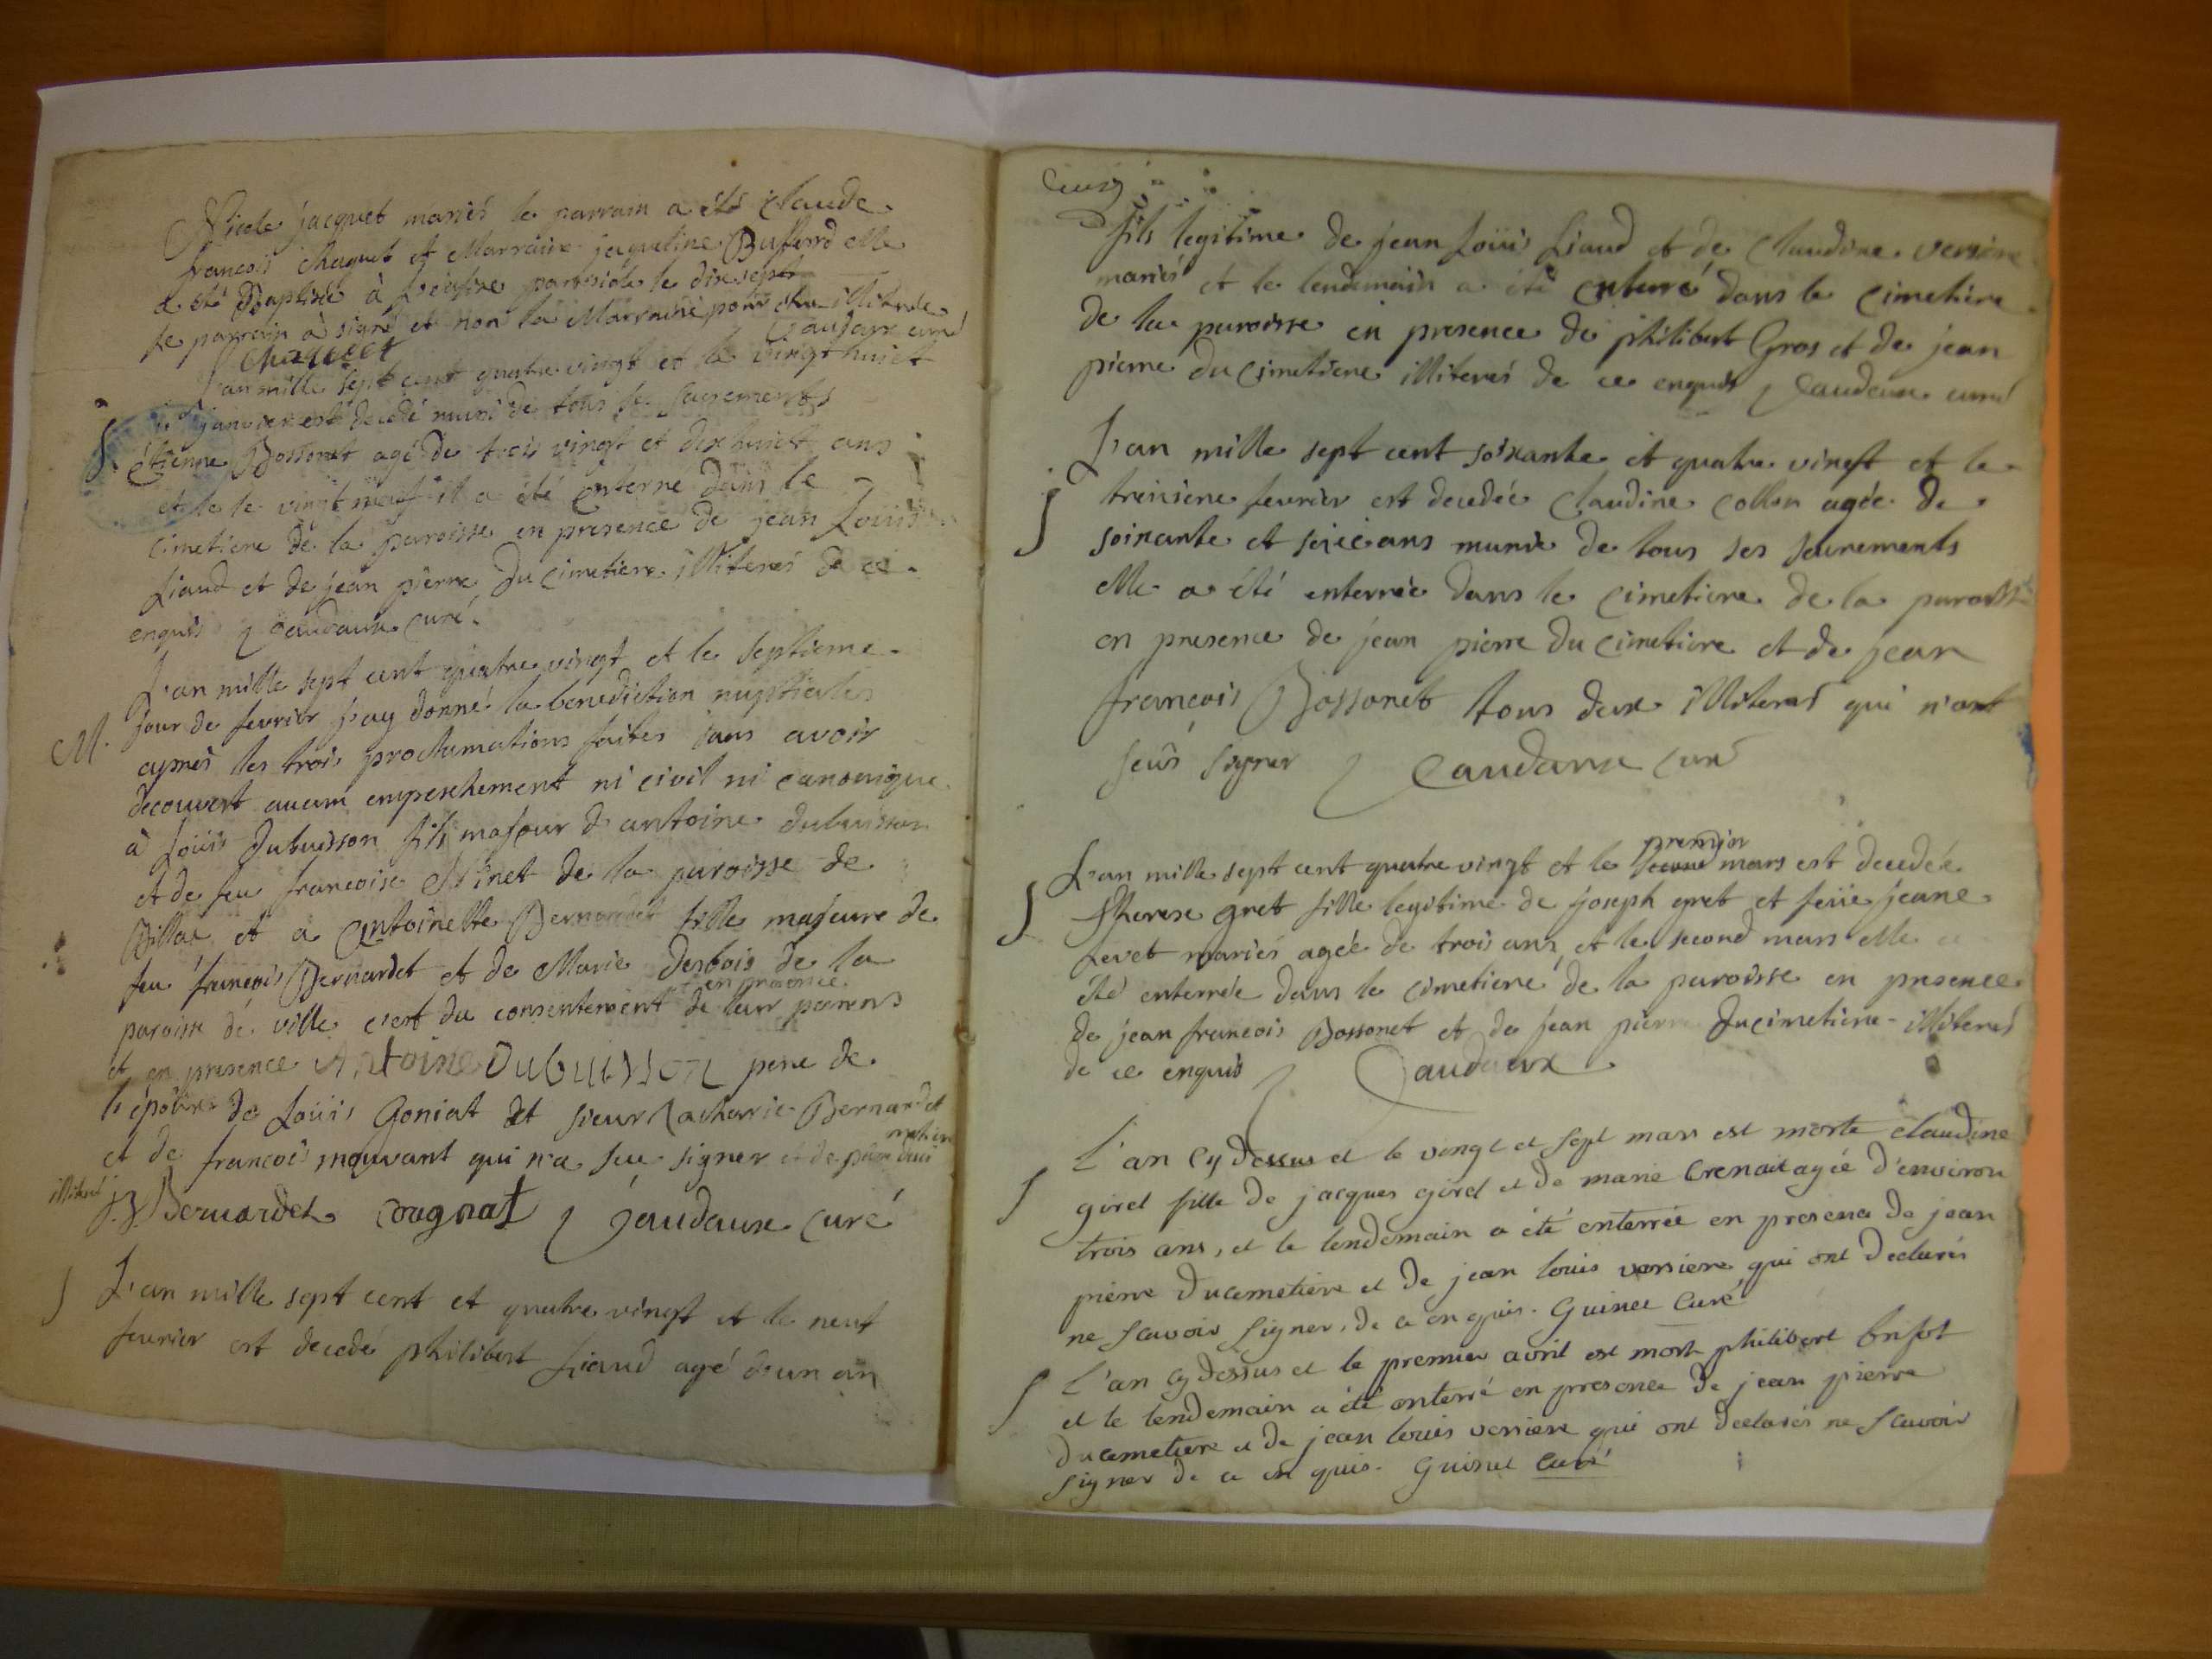 Nicole jacquet mariés le parrain a été Claude
francois Chaquet et Marraine jaqueline Buffard elle
a été Baptisée à l'eglise parroisiale le dix sept
le parrain a signé et non la Marraine pour etre illiterée
Chaquet Caudaux curé
L'an mille sept cent quatre vingt et le vingt huict
janvier est decedé muni de tous se sacrements
S
étienne Bossonet agé de trois vingt et dix huict ans
et le le vingt neuf il a été Enterré dans le
cimetiere de la paroisse en presence de jean Loüis
Liaud et de jean pierre Du cimetiere illiterés de ce
enquis Caudaux curé.
L'an mille sept cent quatre vingt et le septieme
M. jour de fevrier j'ay donné la benediction nuptiale
aprés les trois proclamations faites sans avoir
decouvert aucun empeschement ni civil ni canonique
à Loüis Dubuisson fils majeur d'antoine dubuisson
et de feu francoise Ninet de la paroisse de
Billac et a Antoinette Bernardet fille majeure de
feu françois Bernardet et de Marie Desbois de la
paroisse de ville c'est du consentement de leur parens
en presence
et en presence Antoine Dubuisson pere de
l'époux de Loüis Goniat et sieur Zacharie Bernardet
et de francois mouvant qui n'a seu signer et de
illiteré
J Z Bernardet Cognat Caudaux curé
S L'an mille sept cent et quatre vingt et le neuf
fevrier est decedé philibert Liaud agé d'un an
Cinq
fils legitime de jean Loüis Liaud et de Claudine versiere
mariés et le lendemain a été enterré dans le cimetiere
de la paroisse en presence de philibert Gros et de jean
pierre Du cimetiere illiterés de ce enquis Caudaux curé
L'an mille sept cent soixante et quatre vingt et le
S treizieme fevrier est decedée Claudine Collon agée de
soixante et seize ans munie de tous ses sacrements
elle a été enterrée dans le cimetiere de la paroisse
en presence de jean pierre Du cimetiere et de jean
françois Bossonet tous deux illiterés qui n'ont
seu signer Caudaux curé
premier
L'an mille sept cent quatre vingt et le second mars est decedée
S Therese gret fille legitime de joseph gret et feüe jeane
Levet mariés agée de trois ans et le second mars elle a
été enterrée dans le cimetiere de la paroisse en presence
de jean francois Bossonet et de jean pierre Ducimetiere illiterés
de ce enquis Caudaux
L'an cy dessus et le vingt et sept mars est morte claudine
S girel fille de jacques girel et de marie Crenait agée d'environ
trois ans, et le lendemain a été enterrée en presence de jean
pierre Ducemetiere et de jean louis versiere qui ont declarés
ne scavoir signer, de ce enquis. Guinet Curé
S L'an cy dessus et le premier avril est mort philibert
et le lendemain a été enterré en presence de jean pierre
Ducemetiere et de jean louis versiere qui ont declarés ne scavoir
signer de ce enquis. Guinet Curé